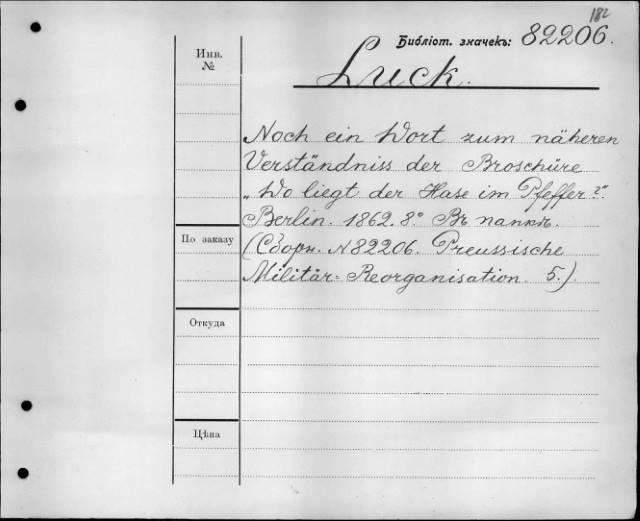 182
Библіот. значекъ: 82206.
Инв.
№
Luck.
Noch ein Wort zum näheren
Verständniss der Broschüre
„Wo liegt der Hase im Pfeffer?".
Berlin. 1862. 8° Въ папкѣ.
(Сборн. N 82206. Preussische
Militär=Reorganisation. 5.).
По заказу
Откуда
Цѣна